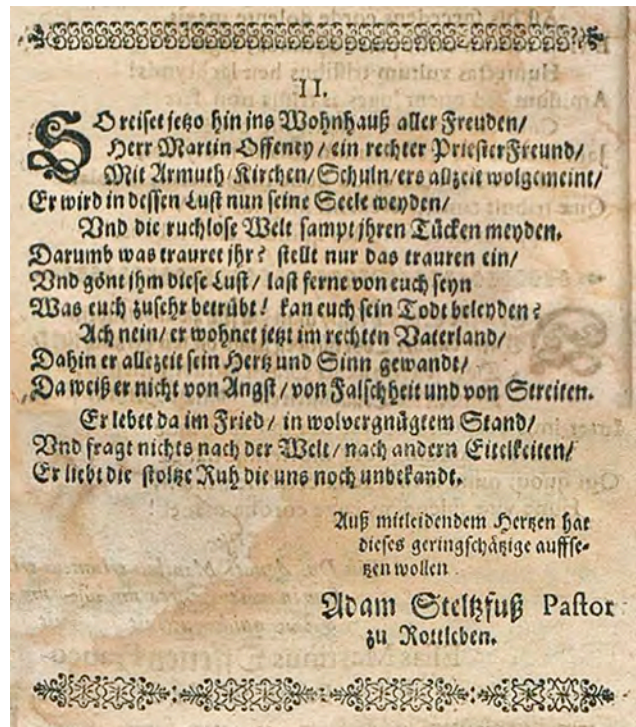 II.
SO reiset jetzo hin ins Wohnhauß aller Freuden/
Herr Martin Offeney / ein rechter PriesterFreund/
Mit Armuth/Kirchen/Schuln/ers allzeit wolgemeint/
Er wird in dessen Lust nun seine Seele weyden/
Vnd die ruchlose Welt sampt jhren Tücken meyden.
Darumb was trauret jhr? stellt nur das trauren ein/
Vnd gönt ihm diese Lust/ last ferne von euch seyn
Was euch zusehr betrübt! kan euch sein Todt beleyden?
Ach nein/ er wohnet jetzt im rechten Vaterland/
Dahin er allezeit sein Hertz und Sinn gewandt/
Da weiß er nicht von Angst/ von Falschheit und von Streiten.
Er lebet da im Fried/ in wolvergnügtem Stand/
Vnd fragt nichts nach der Welt/ nach andern Eitelkeiten/
Er liebt die stoltze Ruh die uns noch unbekandt.
Auß mitleidendem Hertzen hat
dieses geringschätzige auffse-
tzen wollen
Adam Steltzfuß Pastor
zu Rottleben.